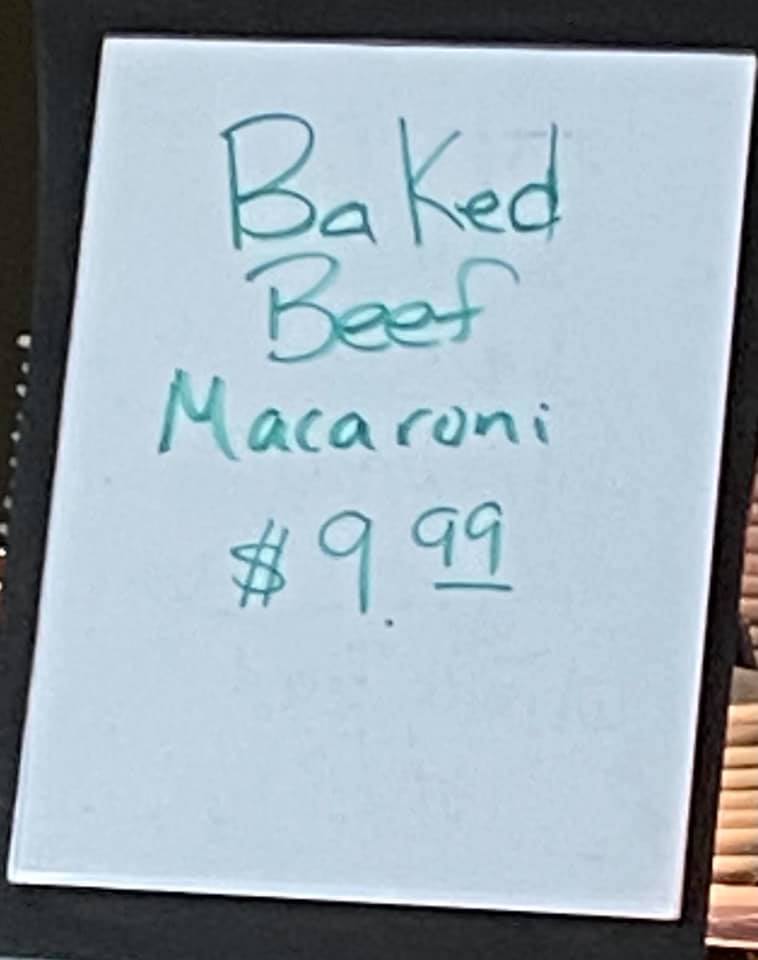 Baked
Beef
Macaroni
$9.99